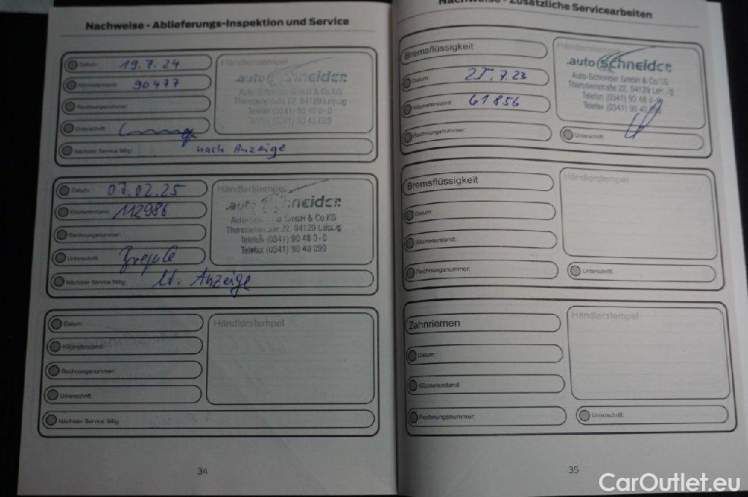 Nachweise - Ablieferungs-Inspektion und Service
Datum: 19.7.24
Kilometerstand: 90477
Rechnungsnummer:
Unterschrift:
Nächster Service fällig: nach Anzeige
Händlerstempel
auto schneider
Auto-Schneider GmbH & Co KG
04129 Leipzig
Telefon (0341) 90 48 0 - 0
Telefax (0341) 90 48 099
Datum: 07.02.25
Kilometerstand: 112986
Rechnungsnummer:
Unterschrift:
Nächster Service fällig: Anzeige
Händlerstempel
auto schneider
GmbH & Co KG
22, 04129 Leipzig
Telefon (0341) 90 48 0 - 0
Telefax (0341) 90 48 099
Datum:
Kilometerstand:
Rechnungsnummer:
Unterschrift:
Nächster Service fällig:
Händlerstempel
34
Nachweise - Zusätzliche Servicearbeiten
Bremsflüssigkeit
Datum: 7.23
Kilometerstand: 61856
Rechnungsnummer:
Händlerstempel
auto schneider
Auto-Schneider GmbH & Co KG
22, 04129 Leipzig
Telefon (0341) 90 48 0 - 0
Telefax (0341) 90 48
Unterschrift:
Bremsflüssigkeit
Datum:
Kilometerstand:
Rechnungsnummer:
Händlerstempel
Unterschrift:
Zahnriemen
Datum:
Kilometerstand:
Rechnungsnummer:
Händlerstempel
Unterschrift:
35
CarOutlet.eu